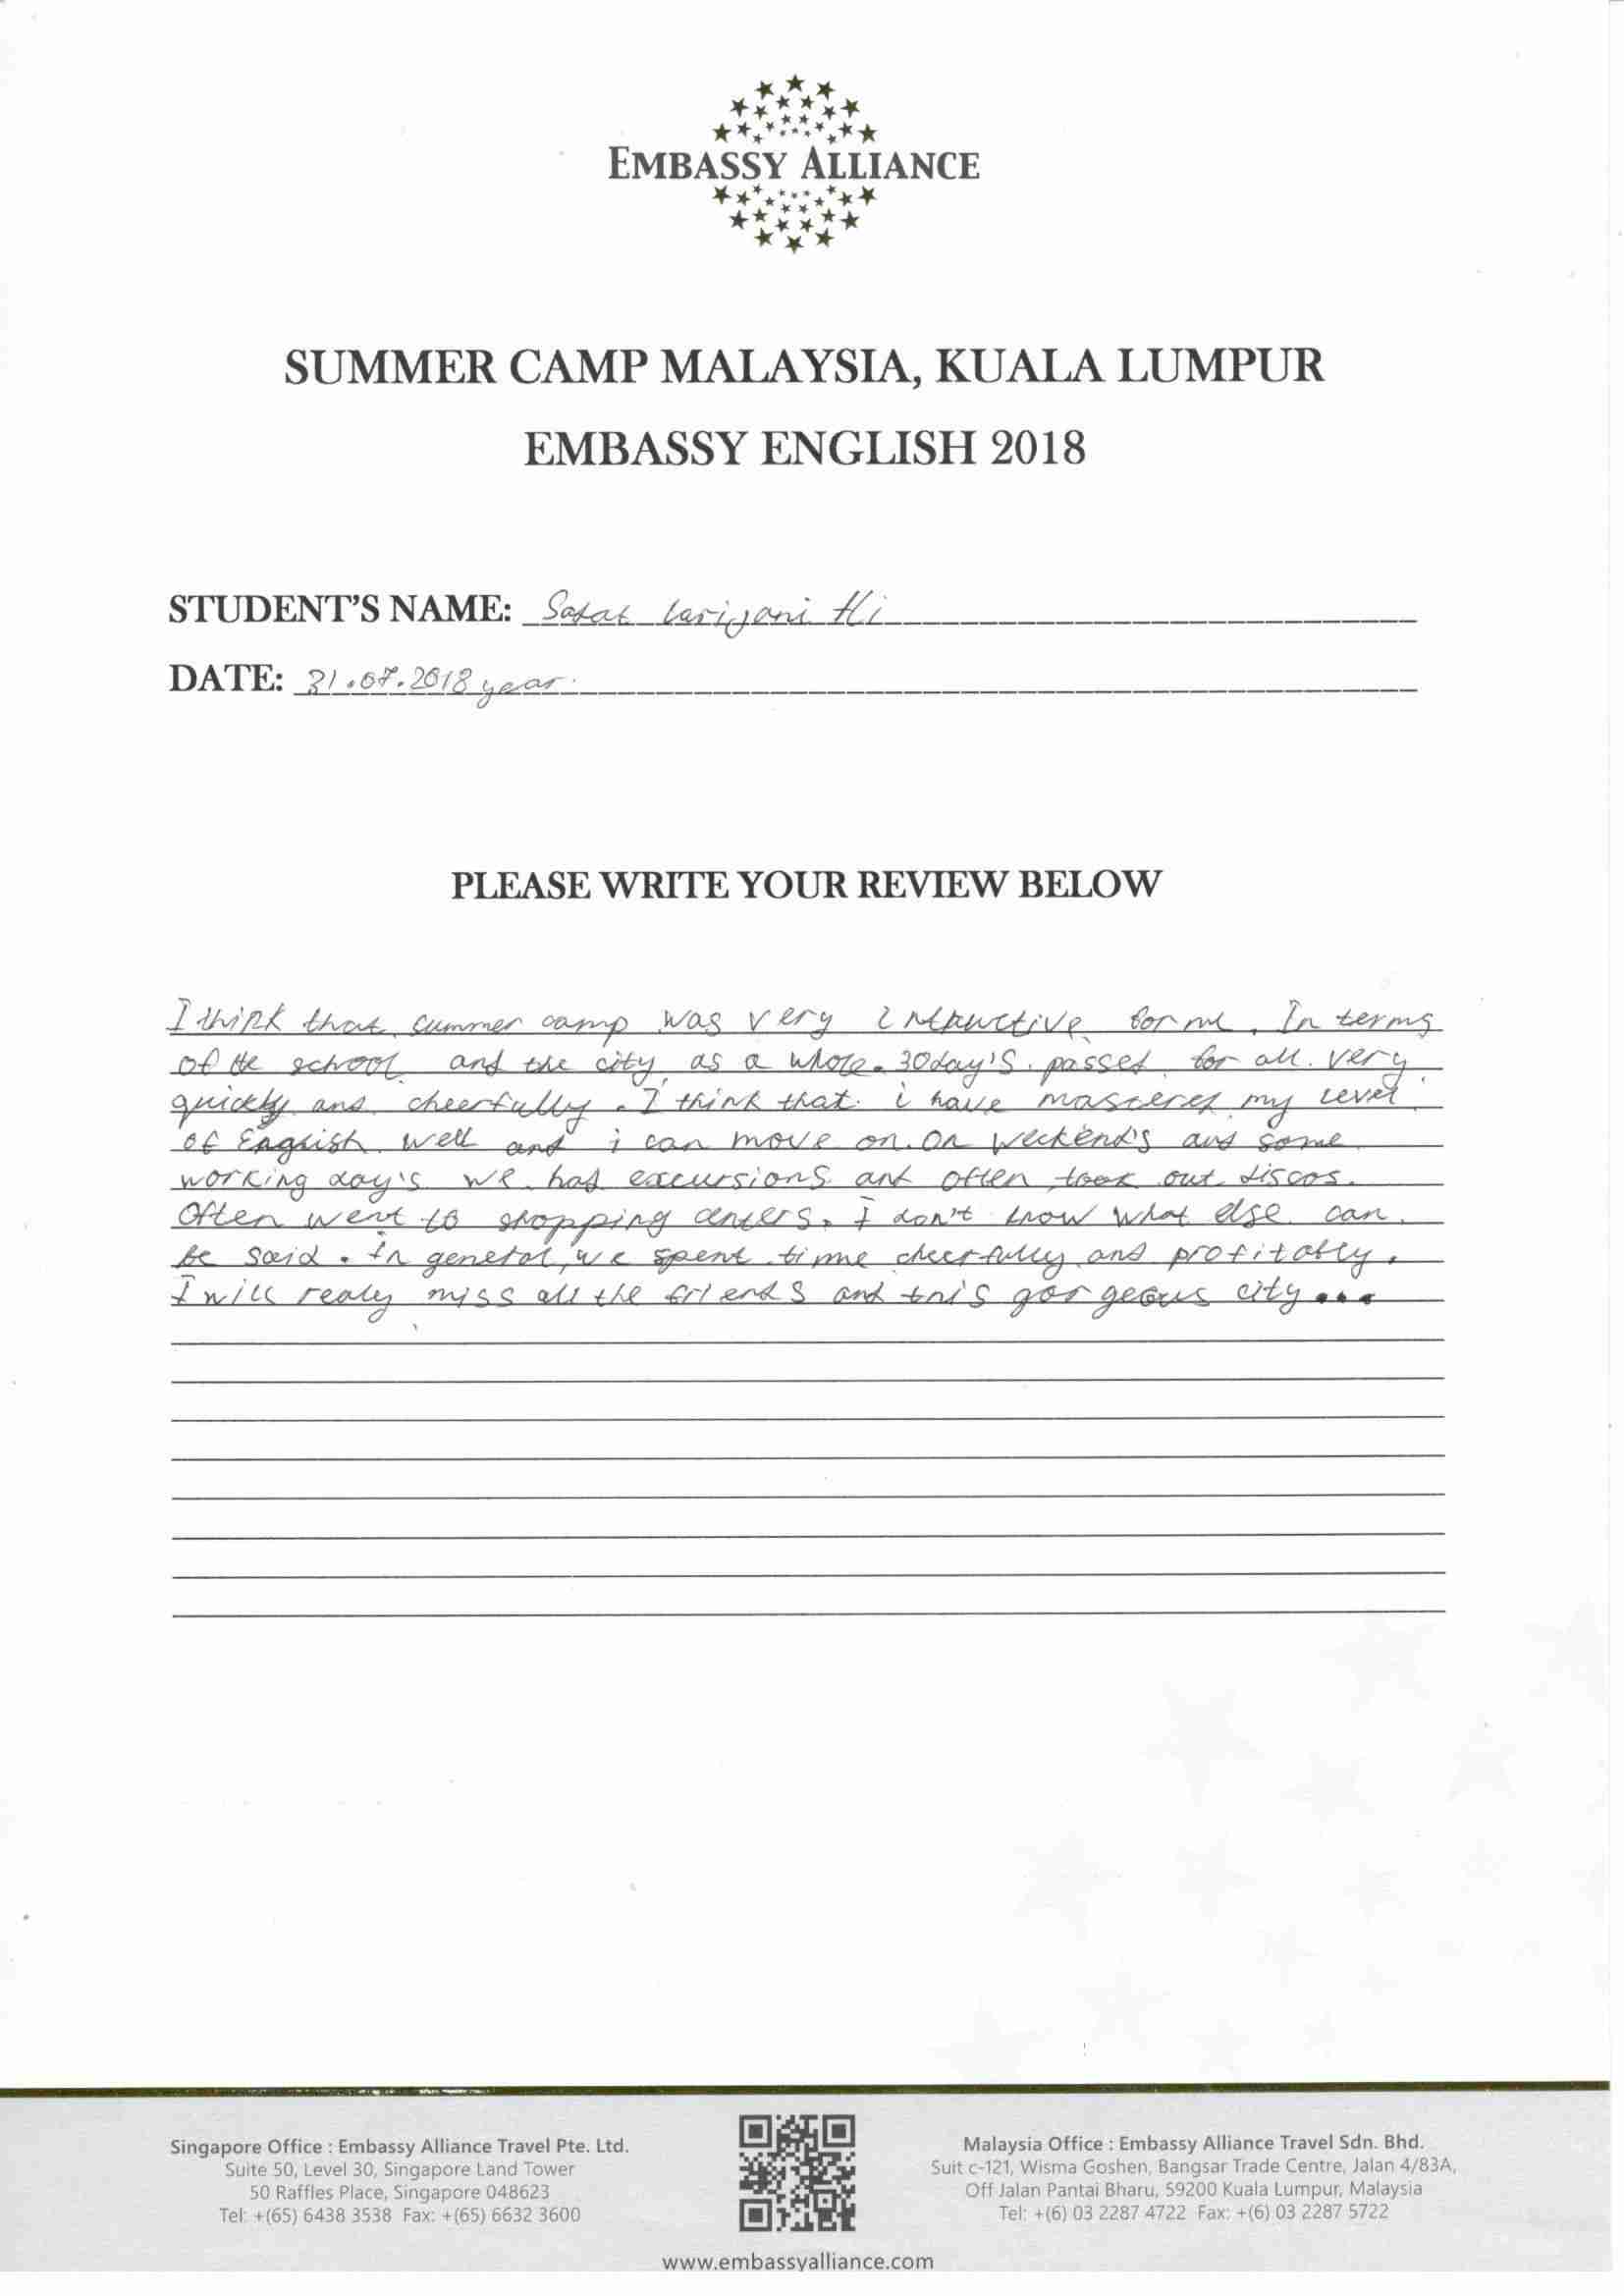 EMBASSY ALLIANCE
SUMMER CAMP MALAYSIA, KUALA LUMPUR
EMBASSY ENGLISH 2018
STUDENT'S NAME: larijani
DATE: 31.07.2018 year.
PLEASE WRITE YOUR REVIEW BELOW
I think that summer camp was very for me. In terms
of the school and the city, as a whole. 30day's passed for all very
quickly and cheerfully. I think that i have mastered my level
of English well and i can move on. On weekend's and some
working day's we had excursions and often took out discos.
Often went to shopping centers. I don't know what else can
be said. In general, we spent time cheerfully and profitably.
I will realy miss all the friends and this gorgeous city...
Singapore Office : Embassy Alliance Travel Pte. Ltd.
Suite 50, Level 30, Singapore Land Tower
50 Raffles Place, Singapore 048623
Tel: +(65) 6438 3538 Fax: +(65) 6632 3600
Malaysia Office : Embassy Alliance Travel Sdn. Bhd.
Suit c-121, Wisma Goshen, Bangsar Trade Centre, Jalan 4/83A,
Off Jalan Pantai Bharu, 59200 Kuala Lumpur, Malaysia
Tel: +(6) 03 2287 4722 Fax: +(6) 03 2287 5722
www.embassyalliance.com